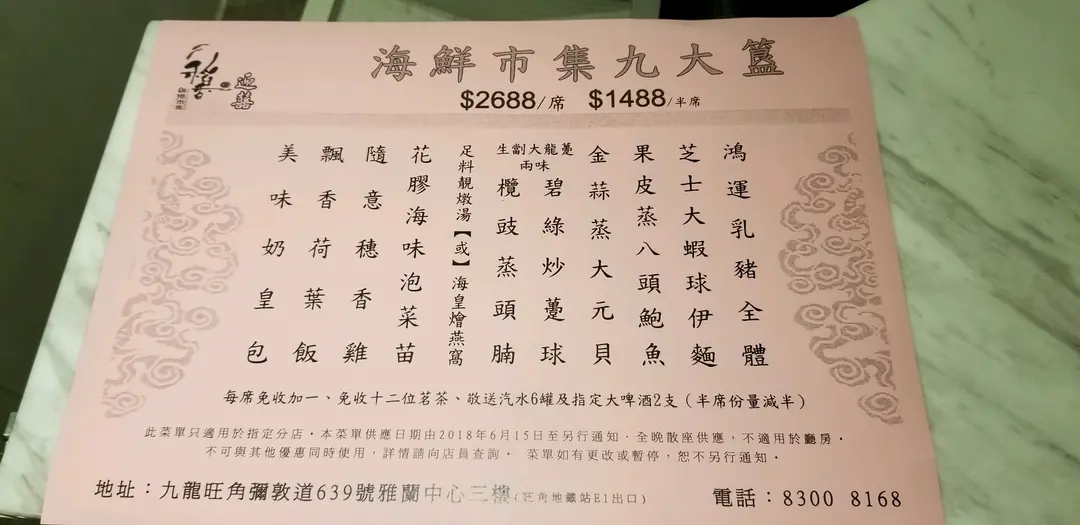 迎囍
海鮮市集九大簋
$2688/席 $1488/半席
鴻運乳豬全體
芝士大蝦球伊麵
果皮蒸八頭鮑魚
金蒜蒸大元貝
生劏大龍躉
兩味
碧綠炒躉球
欖豉蒸頭腩
足料靚燉湯【或】海皇燴燕窩
花膠海味泡菜苗
隨意穗香雞
飄香荷葉飯
美味奶皇包
每席免收加一、免收十二位茗茶、敬送汽水6罐及指定大啤酒2支（半席份量減半）
此菜單只適用於指定分店。本菜單供應日期由2018年6月15日至另行通知。全晚散座供應，不適用於廳房。
不可與其他優惠同時使用，詳情請向店員查詢。 菜單如有更改或暫停，恕不另行通知。
地址：九龍旺角彌敦道639號雅蘭中心三樓(旺角地鐵站E1出口)
電話：8300 8168